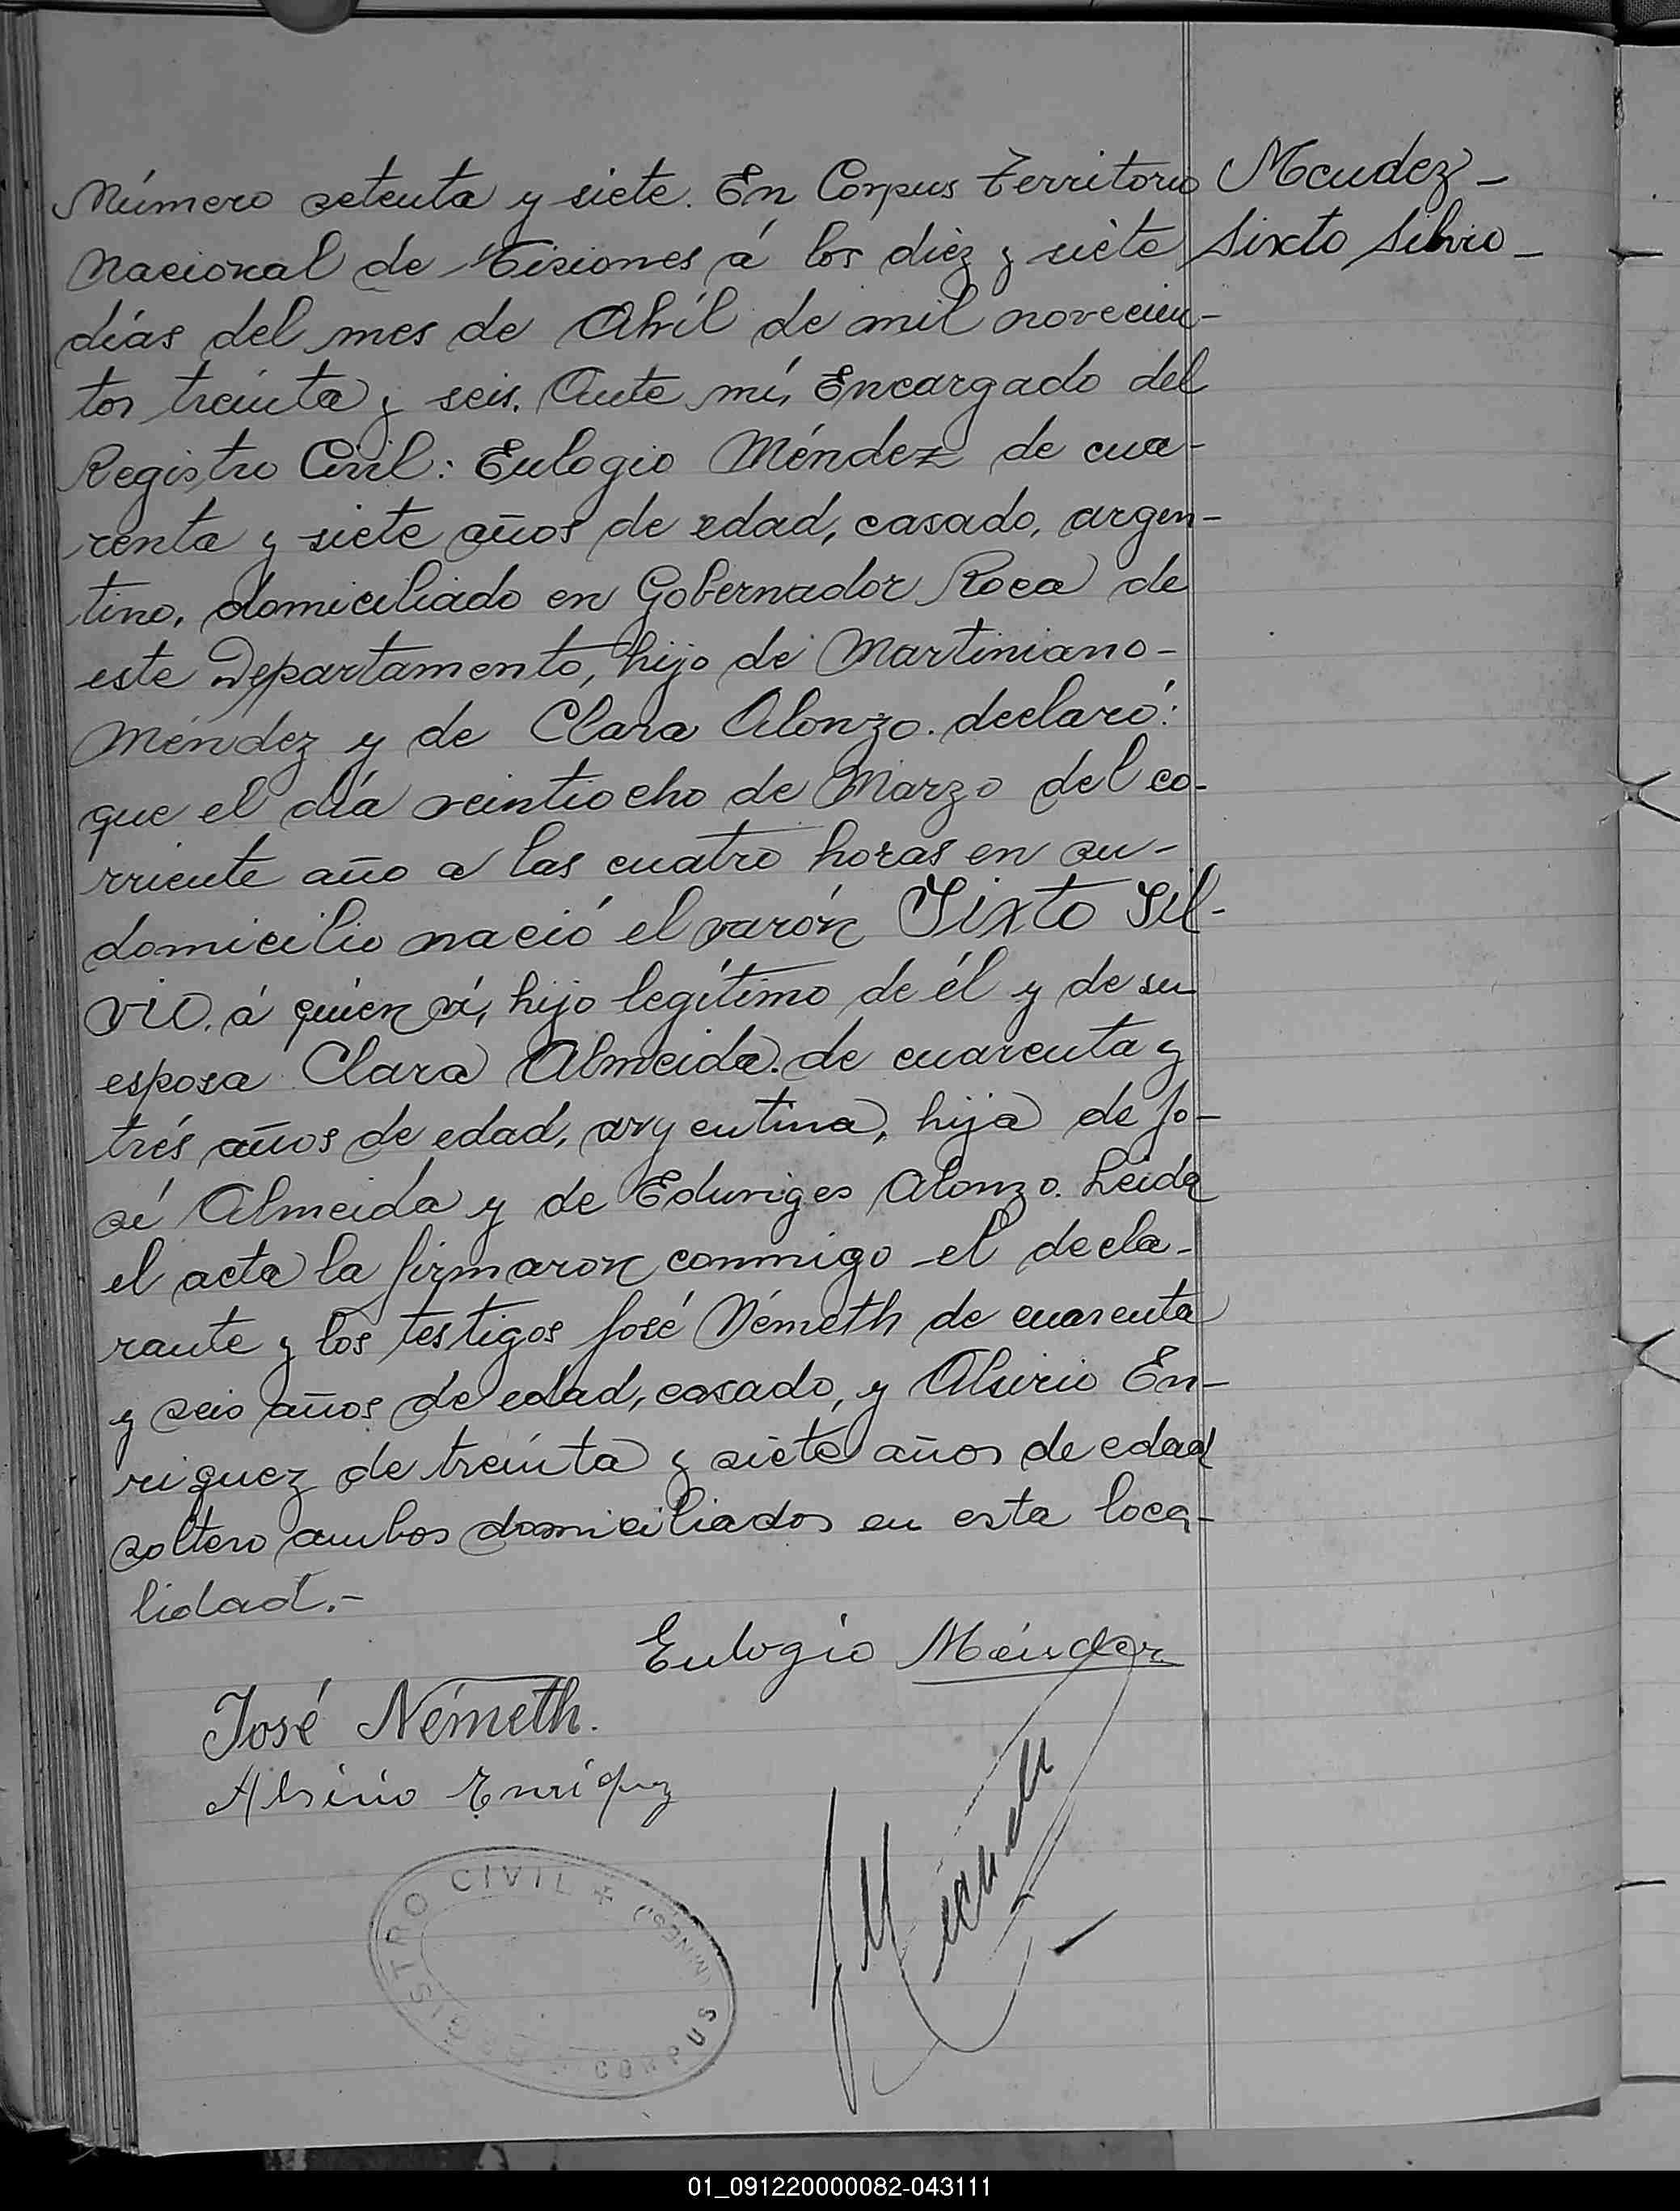 Número setenta y siete. En Corpus Territorio
Nacional de Misiones á los diéz y siéte
días del mes de Abríl de mil novecien-
tos treinta y seis. Ante mí, Encargado del
Registro Civil: Eulogio Méndez de cua-
renta y siete años de edad, casado, argen-
tino, domiciliado en Gobernador Roca de
este Departamento, hijo de Martiniano-
Méndez y de Clara Alonzo. declaró:
que el día veintiocho de Marzo del co-
rriente año a las cuatro horas en su-
domicilio nació el varón Sixto Sil-
vio. á quien ví, hijo legítimo de él y de su
esposa Clara Almeida. de cuarenta y
trés años de edad, argentina, hija de Jo-
sé Almeida y de Eduviges Alonzo. Leida
el acta la firmaron conmigo el decla-
rante y los testigos José Németh de cuarenta
y seis años de edad, casado, y Alsirio En-
riquez de treinta y siéte años de edad
soltero ambos domiciliados en esta loca-
lidad.-
Mendez -
Sixto Silvio -
Eulogio Méndez
José Németh.
Alsirio Enriquez
REGISTRO CIVIL ✠ (MNES.) CORPUS
01_091220000082-043111